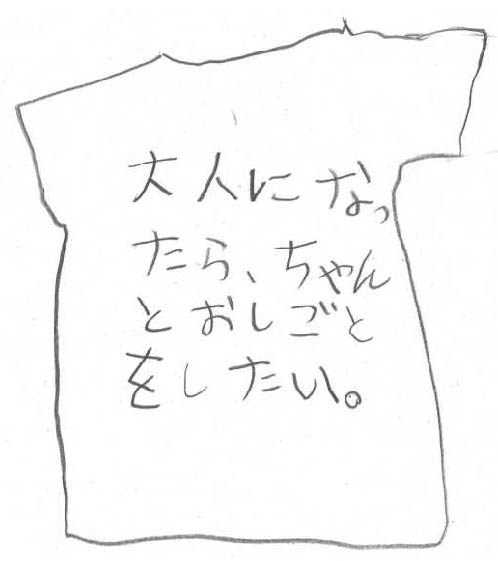 大人になっ
たら、ちゃん
とおしごと
をしたい。